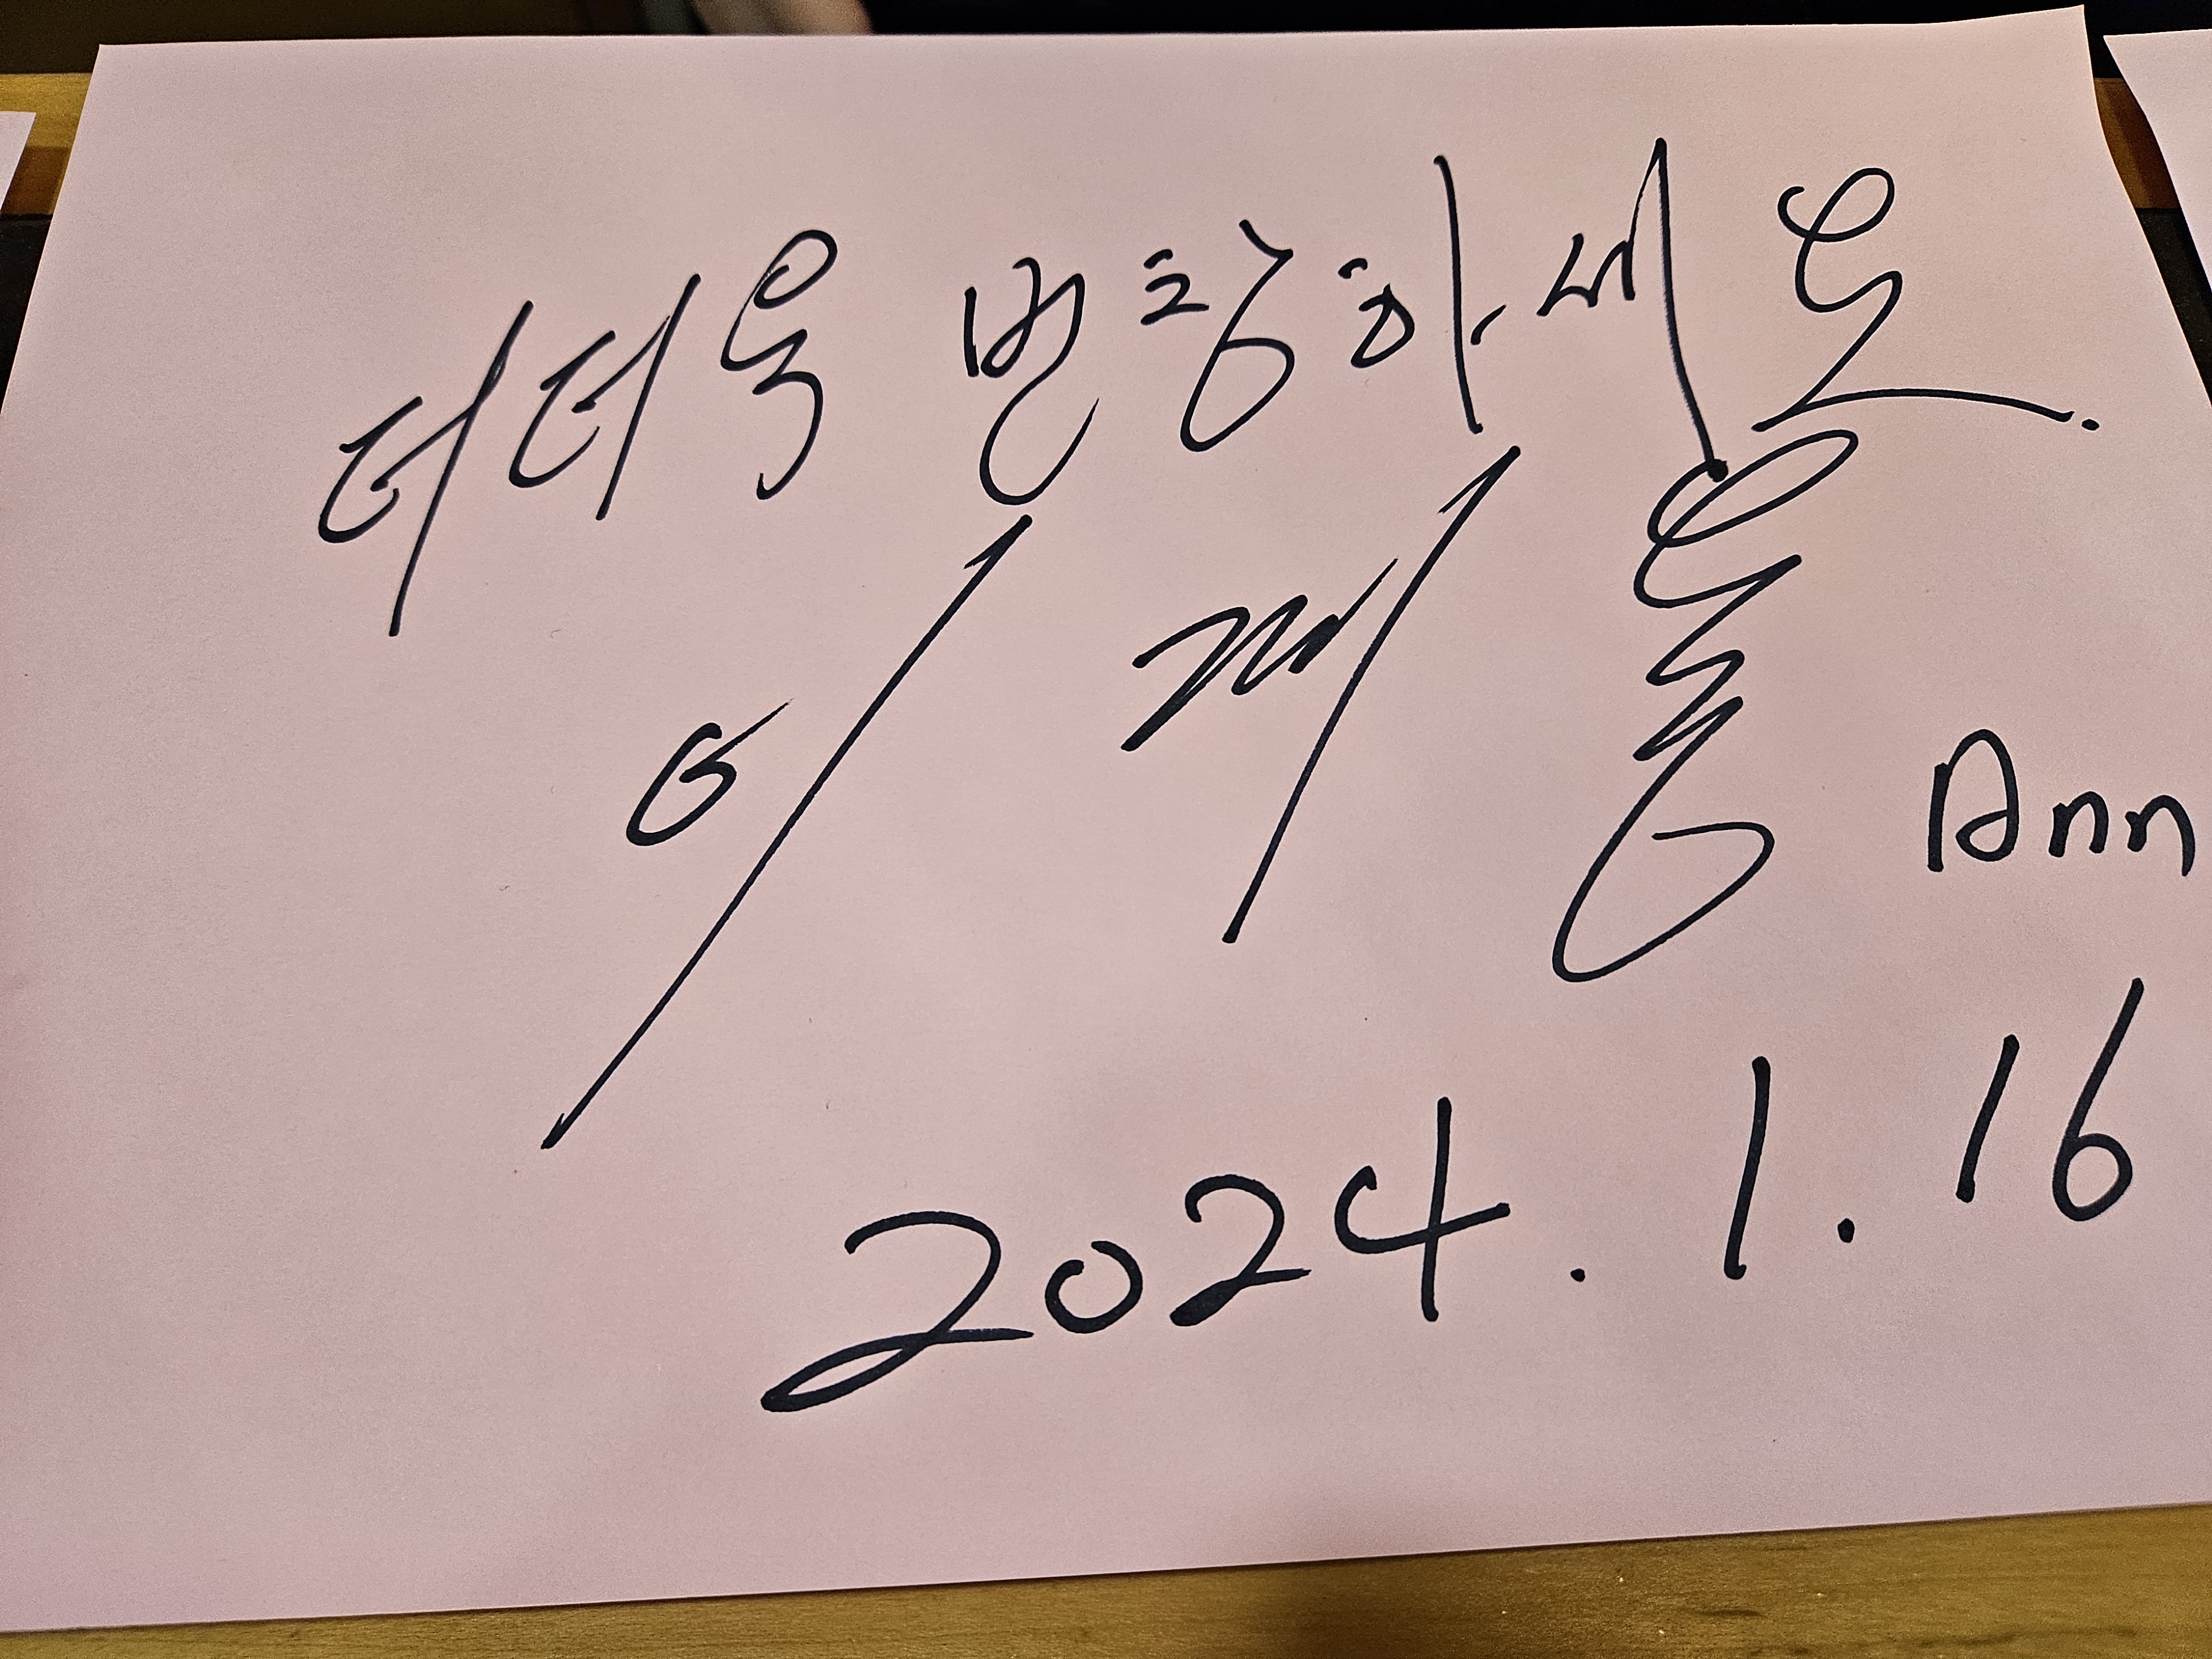 더더욱 번창하세요.
이재용 Ann
2024. 1. 16